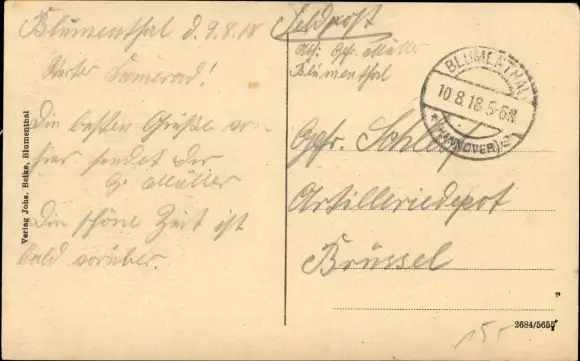 Blumenthal d. 9.8.18
Werter Kamerad!
Die besten Grüße von
hier sendet Dir
Gr. Müller
Die schöne Zeit ist
bald vorüber.
Verlag Johs. Beike, Blumenthal
Feldpost
Abs: Gefr. Müller
Blumenthal
BLUMENTHAL
10.8.18.5-6N.
* (HANNOVER) c
Gefr.
Artilleriedepot
Brüssel
2684/5655
15.-